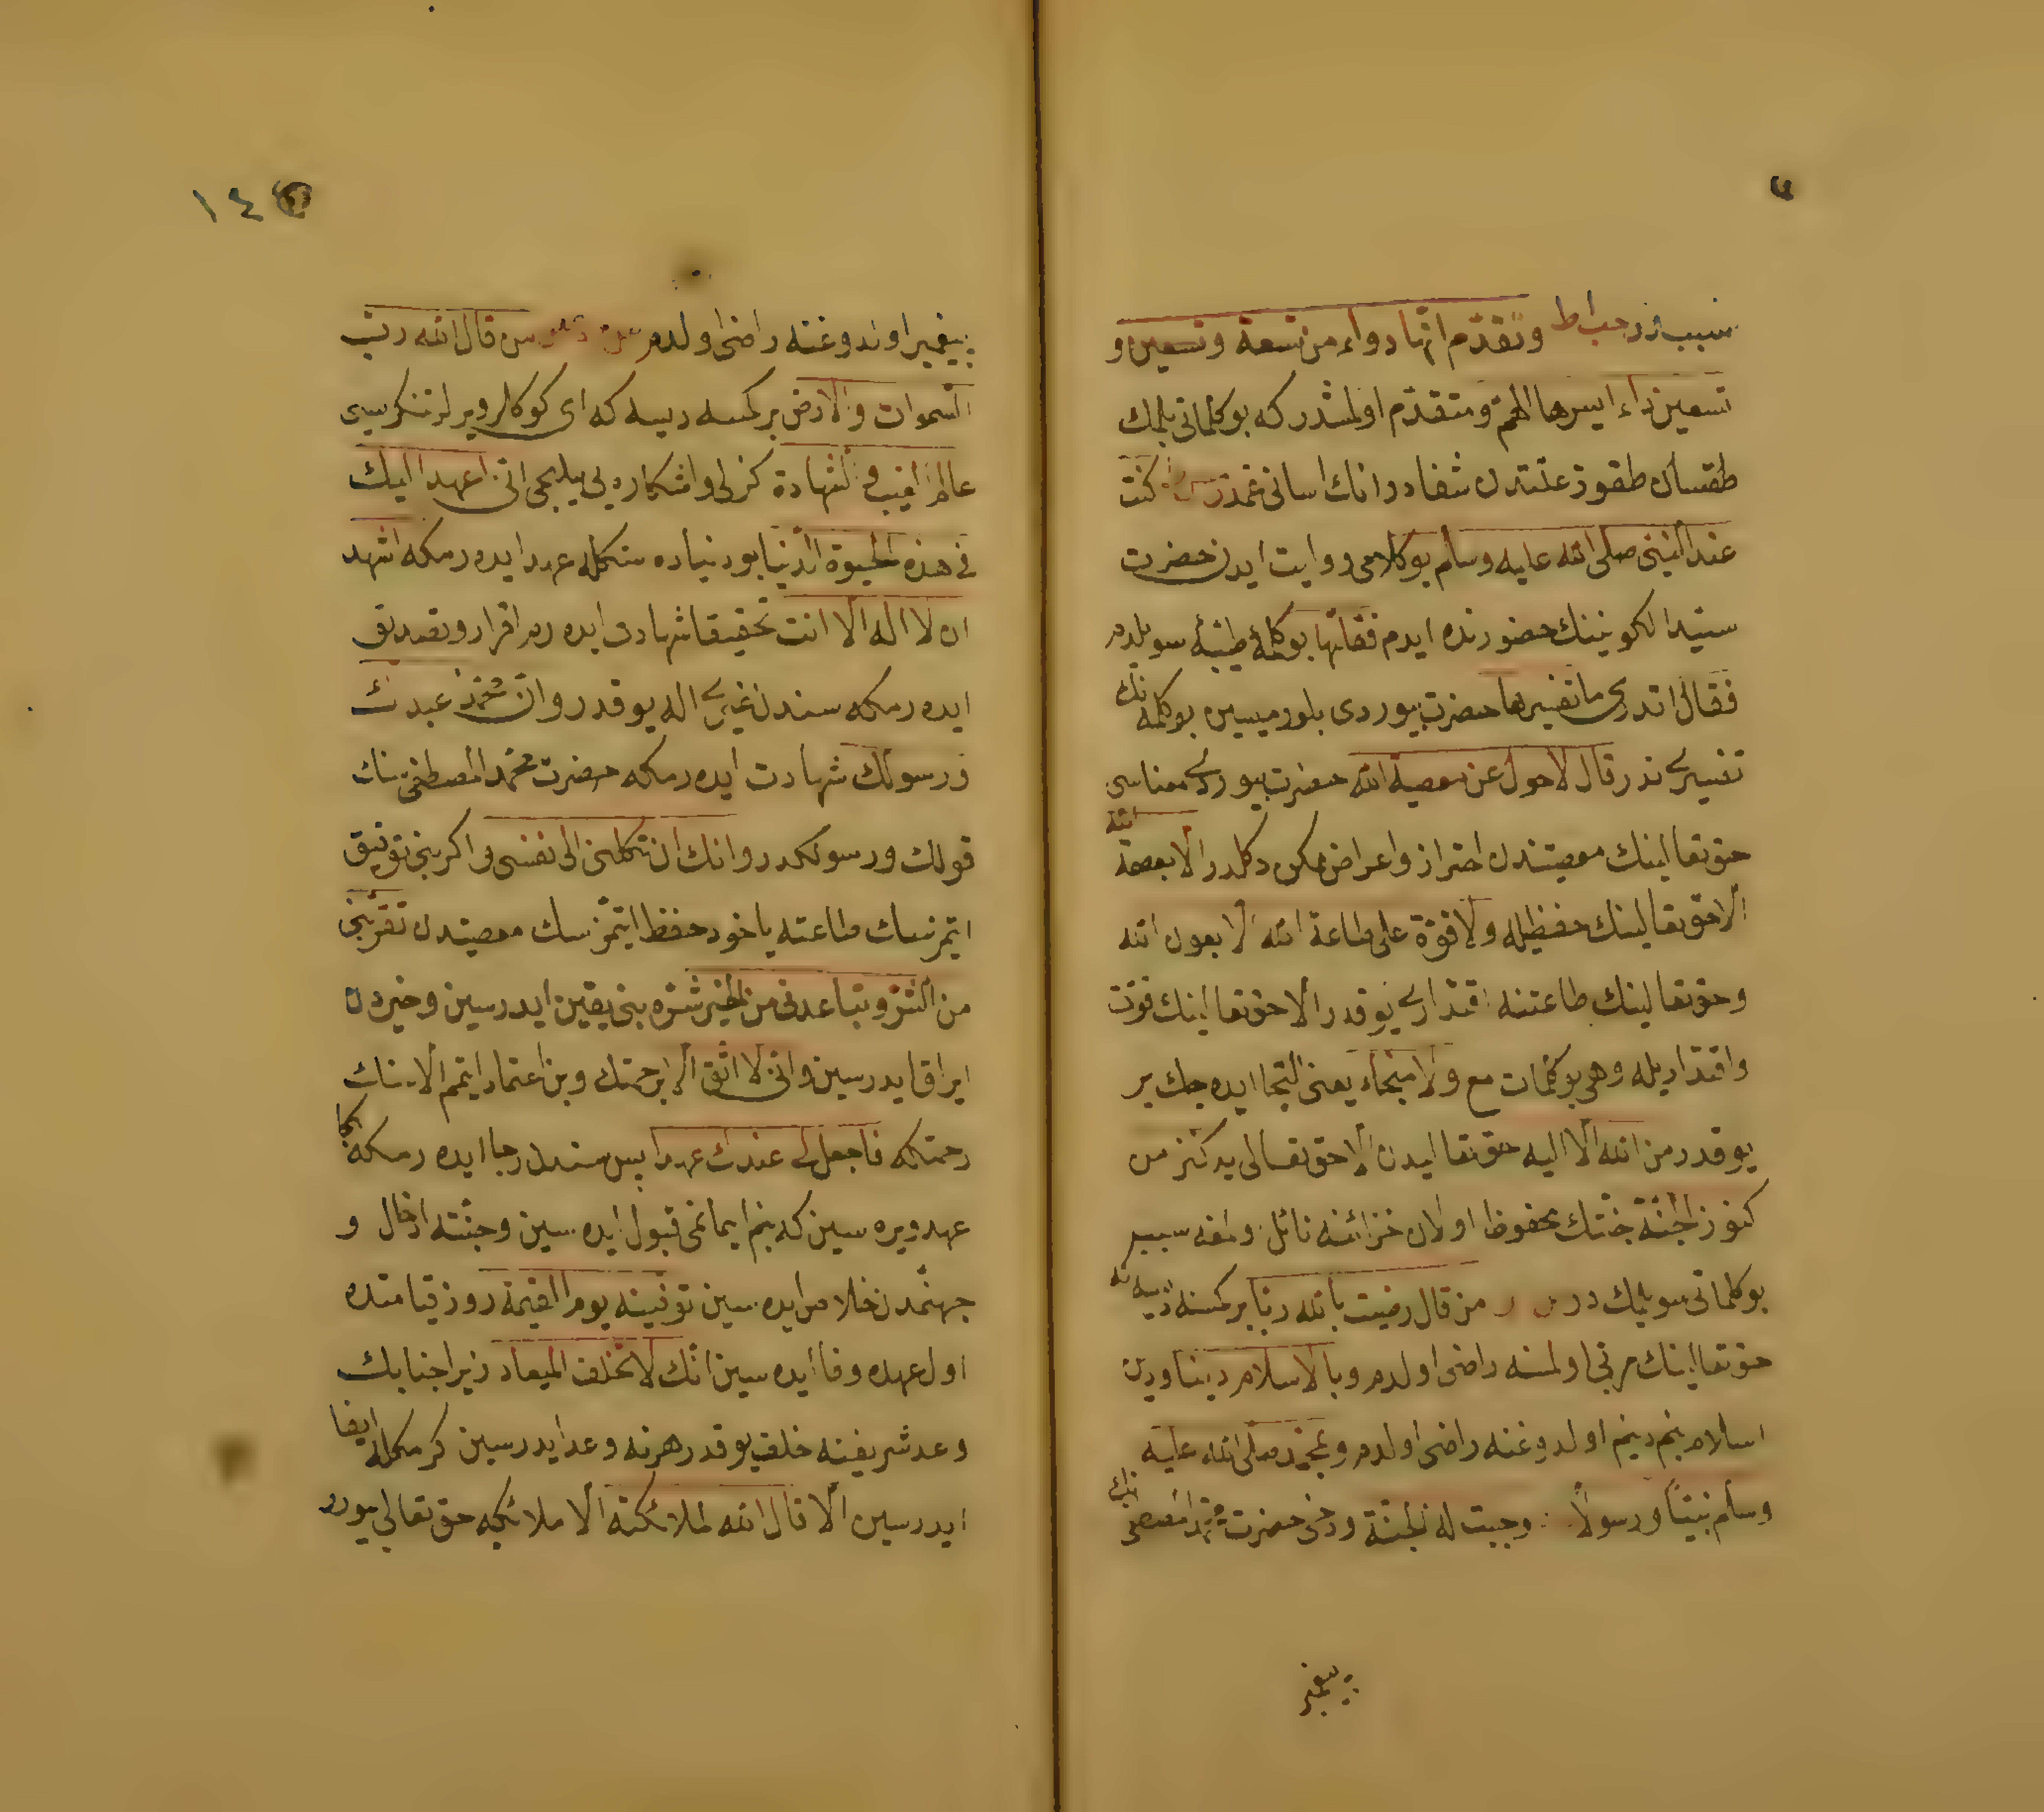 سببدر وتقدم انها دواء من تسعة وتسعين و
تسعين داء ايسرها الهم ومتقدم اولمشدر كه بو كلماتی بلمك
طقسان طقوز علتدن شفادر انك اسانی غمدر كنت
عند النبی صلی الله علیه وسلم بو كلامی روایت ایدن حضرت
سید الكونینك حضورنده ایدم فقلتها بو كلمهٔ طیبهٔ سویلدم
فقال اتدری ما تفسیرها حضرت بیوردی بلورمیسین بو كلمه نك
تفسیری ندر قال لا حول عن معصیة الله حضرت بیوردی معناسی
حق تعالینك معصیتندن احتراز واعراض ممكن دكلدر الا بعصمة الله
الا حق تعالینك حفظیله ولا قوة علی طاعة الله الا بعون الله
وحق تعالینك طاعتنه اقتداری یوقدر الا حق تعالینك قوت
واقتداریله وهی بو كلمات مع ولا منجاء یعنی التجا ایده جك یر
یوقدر من الله الا الیه حق تعالیدن الا حق تعالی یدكنز من
كنوز الجنة جنتك محفوظ اولان خزائنه نائل اولمغه سببدر
بو كلماتی سویلمك در من قال رضیت بالله ربا بر كمسنه دیسه كه
حق تعالینك مربی اولمسنه راضی اولدم وبالاسلام دینا ودین
اسلام بنم دینم اولدوغنه راضی اولدم وبمحمد صلی الله علیه
وسلم نبیا ورسولا وجبت له الجنة ودخی حضرت محمد المصطفی نك
پیغمبر
١٤
پیغمبر اولدوغنه راضی اولدم من قال الله رب
السموات والارض بر كمسه دیسه كه ای كوكلر ویرلر تنكریسی
عالم الغیب والشهادة كزلی واشكاره یی بیلیجی انی اعهد الیك
فی هذه الحیوة الدنیا بو دنیاده سنكله عهد ایده رمكه اشهد
ان لا اله الا انت تحقیقا شهادت ایده رم اقرار وتصدیق
ایده رمكه سندن غیری اله یوقدر وان محمدا عبدك
ورسولك شهادت ایده رمكه حضرت محمد المصطفی سنك
قولك ورسولكدر وانك ان تكلنی الی نفسی و اكر بنی توفیق
ایتمزسك طاعته یاخود حفظ ایتمزسك معصیتدن تقربنی
من الشر وتباعدنی من الخیر شره بنی یقین ایدرسین وخیردن
ایراق ایدرسین وانی لا اثق الا برحمتك وبن اعتماد ایتمم الا سنك
رحمتكه فاجعل لی عندك عهدا پس سندن رجا ایده رمكه بكا
عهد ویره سین كه بنم ایمانمی قبول ایده سین وجنته ادخال و
جهنمدن خلاص ایده سین توفینه یوم القیمة روز قیامتده
اول عهده وفا ایده سین انك لا تخلف المیعاد زیرا جنابك
وعد شریفنه خلف یوقدر هر نه وعد ایدرسین كرمكله ایفا
ایدرسین الا قال الله لملائكته الا ملائكیه حق تعالی بیورر